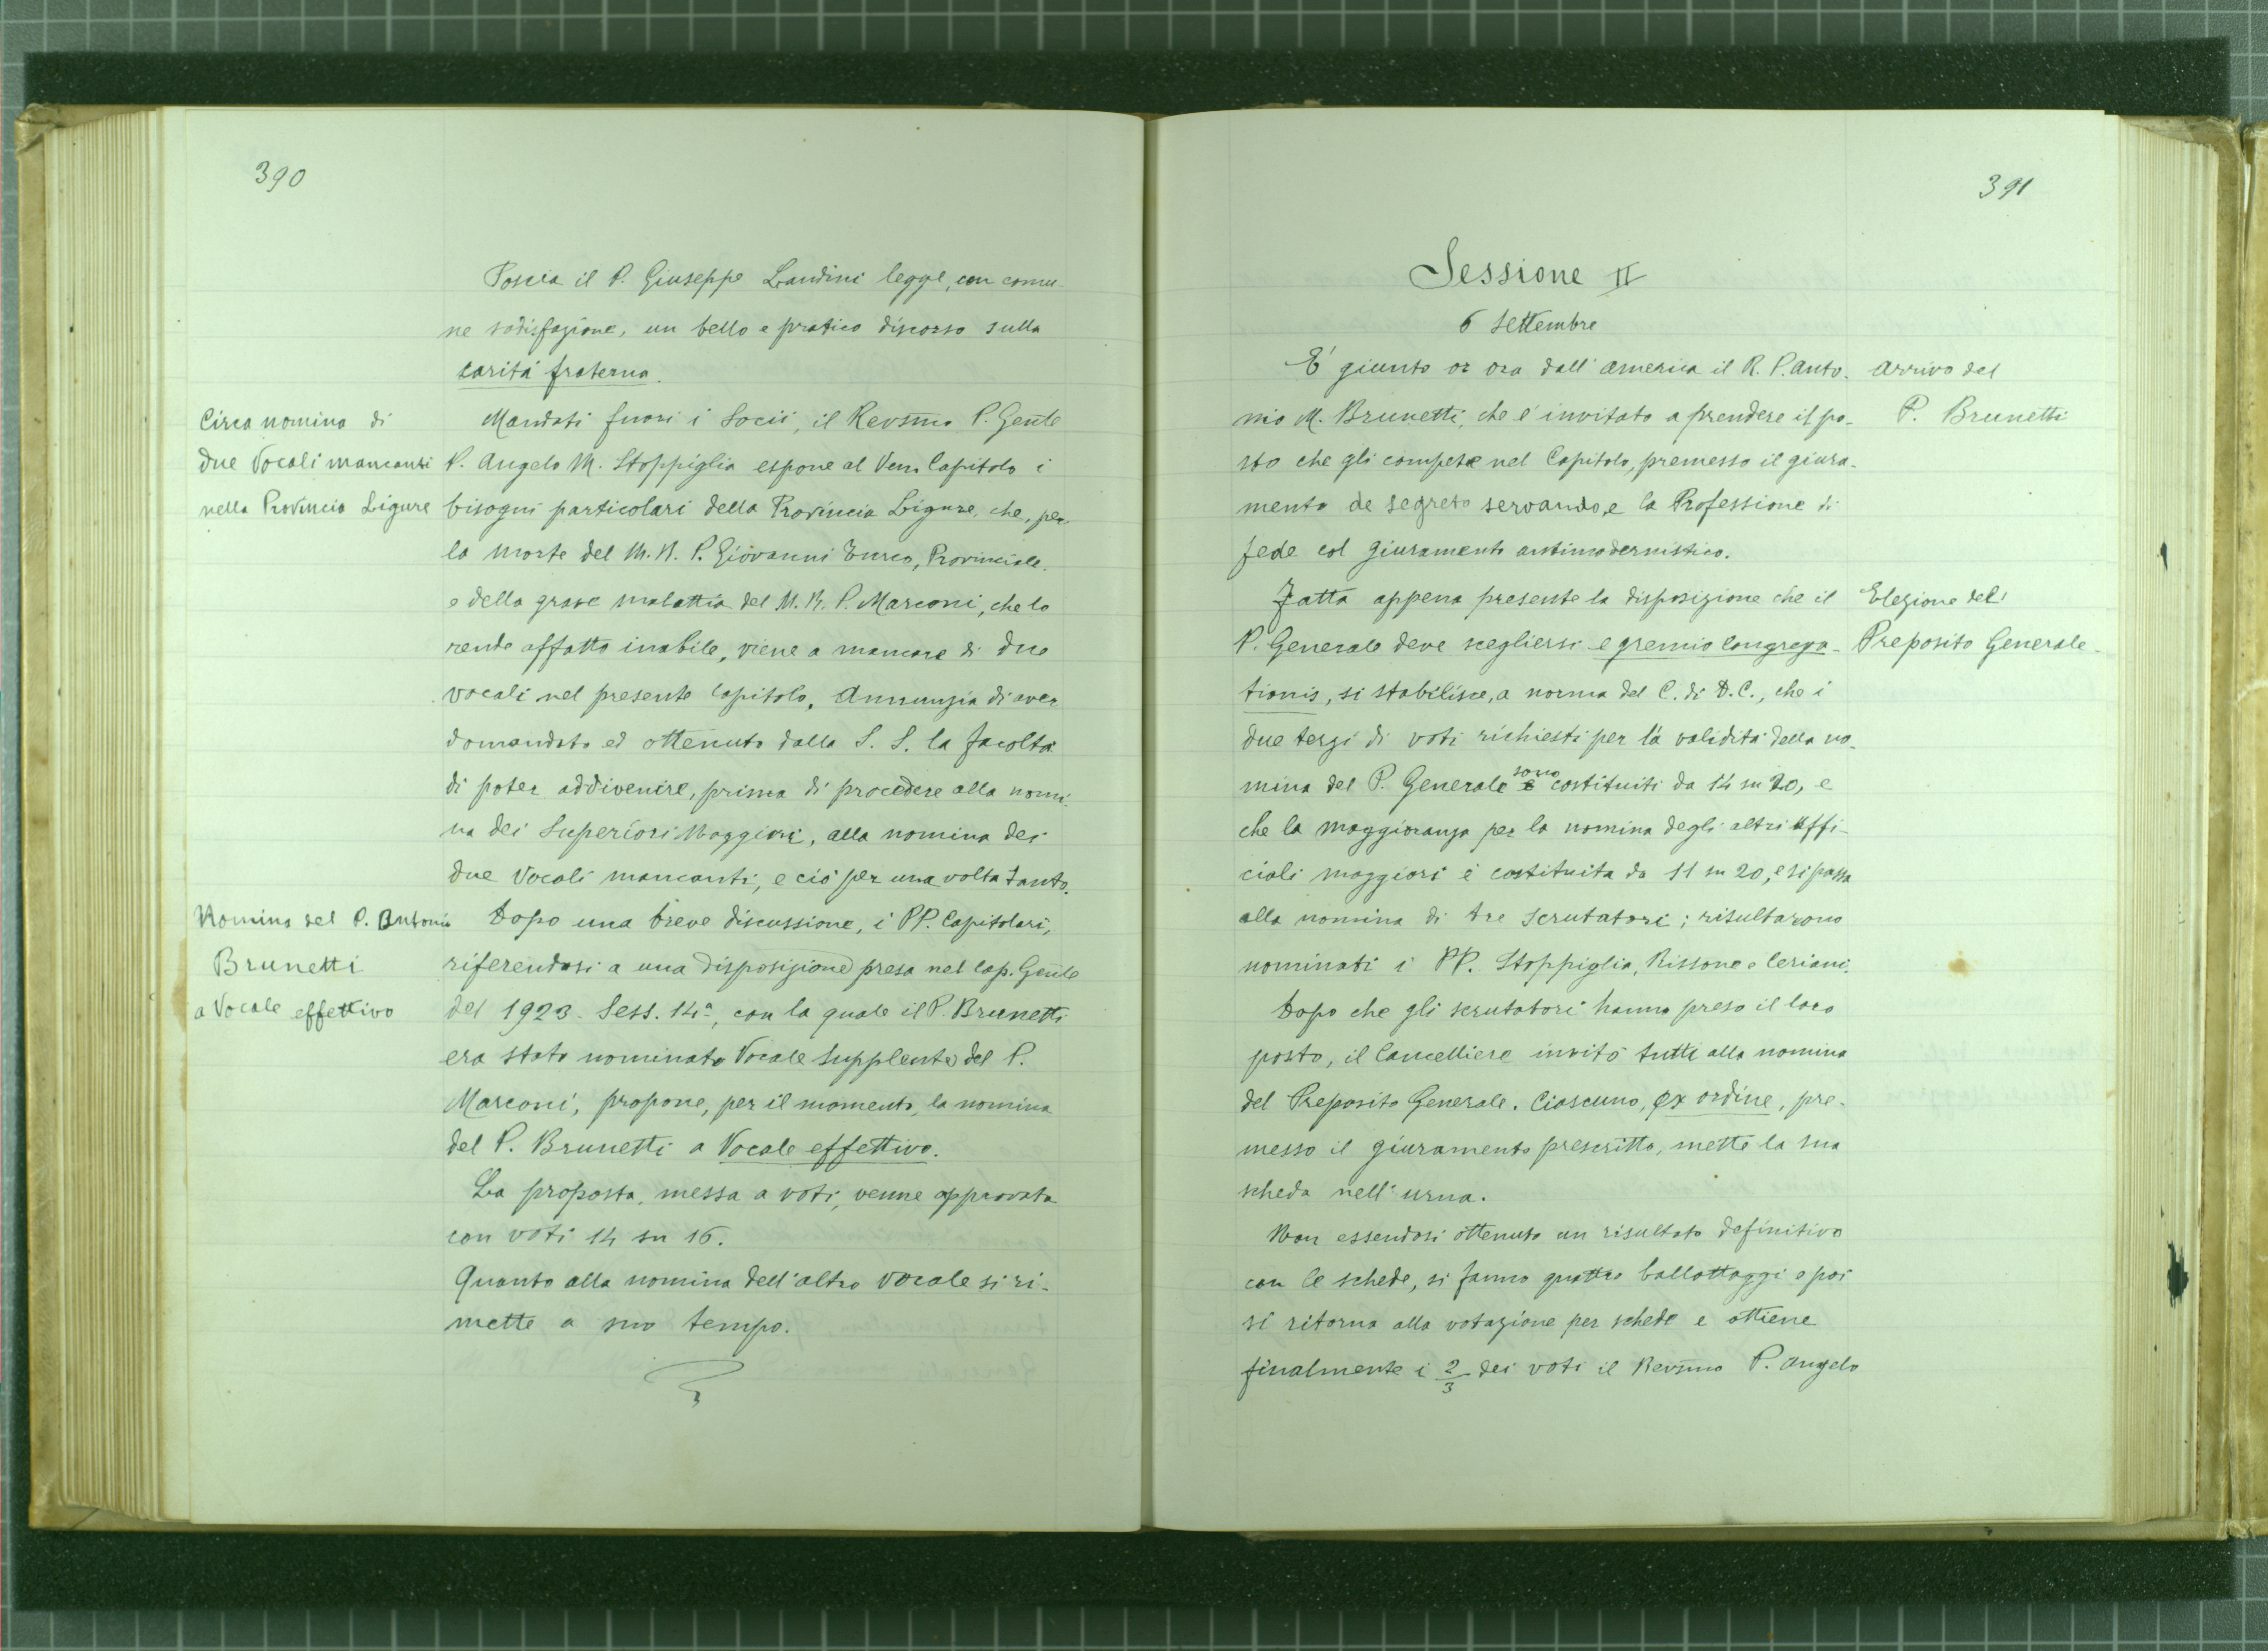 390
Poscia il P. Giuseppe Landini legge, con comu-
ne sodisfazione, un bello e pratico discorso sulla
carità fraterna.
Circa nomina di
due Vocali mancanti
nella Provincia Ligure
Mandati fuori i Socii, il Revs̄mo P. Gen̄le
P. Angelo M. Stoppiglia espone al Ven. Capitolo i
bisogni particolari della Provincia Ligure, che, per
la morte del M. R. P. Giovanni Turco, Provinciale,
e della grave malattia del M. R. P. Marconi, che lo
rende affatto inabile, viene a mancare di due
vocali nel presente Capitolo. Annunzia di aver
domandato ed ottenuto dalla S. S. la facoltà
di poter addivenire, prima di procedere alla nomi-
na dei Superiori Maggiori, alla nomina dei
due Vocali mancanti, e ciò per una volta tanto.
Nomina del P. Antonio
Brunetti
a Vocale effettivo
Dopo una breve discussione, i PP. Capitolari,
riferendosi a una disposizione presa nel Cap. Gen̄le
del 1923. Sess. 14ª, con la quale il P. Brunetti
era stato nominato Vocale supplente del P.
Marconi, propone, per il momento, la nomina
del P. Brunetti a Vocale effettivo.
La proposta, messa a voti, venne approvata
con voti 14 su 16.
Quanto alla nomina dell'altro Vocale si ri-
mette a suo tempo.
391
Sessione II
6 Settembre
E' giunto or ora dall'America il R. P. Anto-
nio M. Brunetti, che è invitato a prendere il po-
sto che gli compete nel Capitolo, premesso il giura-
mento de segreto servando, e la Professione di
fede col giuramento antimodernistico.
Arrivo del
P. Brunetti
Fatta appena presente la disposizione che il
P. Generale deve scegliersi e gremio Congrega-
tionis, si stabilisce, a norma del C. di D. C., che i
due terzi di voti richiesti per la validità della no-
mina del P. Generale sono costituiti da 14 su 20, e
che la maggioranza per la nomina degli altri Uffi-
ciali maggiori è costituita da 11 su 20, e si passa
alla nomina di tre Scrutatori; risultarono
nominati i PP. Stoppiglia, Rissone e Ceriani.
Elezione del
Preposito Generale
Dopo che gli scrutatori hanno preso il loro
posto, il Cancelliere invitò tutti alla nomina
del Preposito Generale. Ciascuno, ex ordine, pre-
messo il giuramento prescritto, mette la sua
scheda nell'urna.
Non essendosi ottenuto un risultato definitivo
con le schede, si fanno quattro ballottaggi e poi
si ritorna alla votazione per schede e ottiene
finalmente i 2/3 dei voti il Revs̄mo P. Angelo